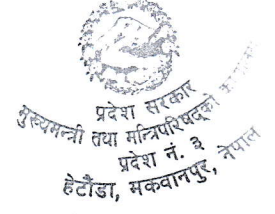 प्रदेश सरकार
मुख्यमन्त्री तथा मन्त्रिपरिषद्को
प्रदेश नं. ३
हेटौंडा, मकवानपुर, नेपाल